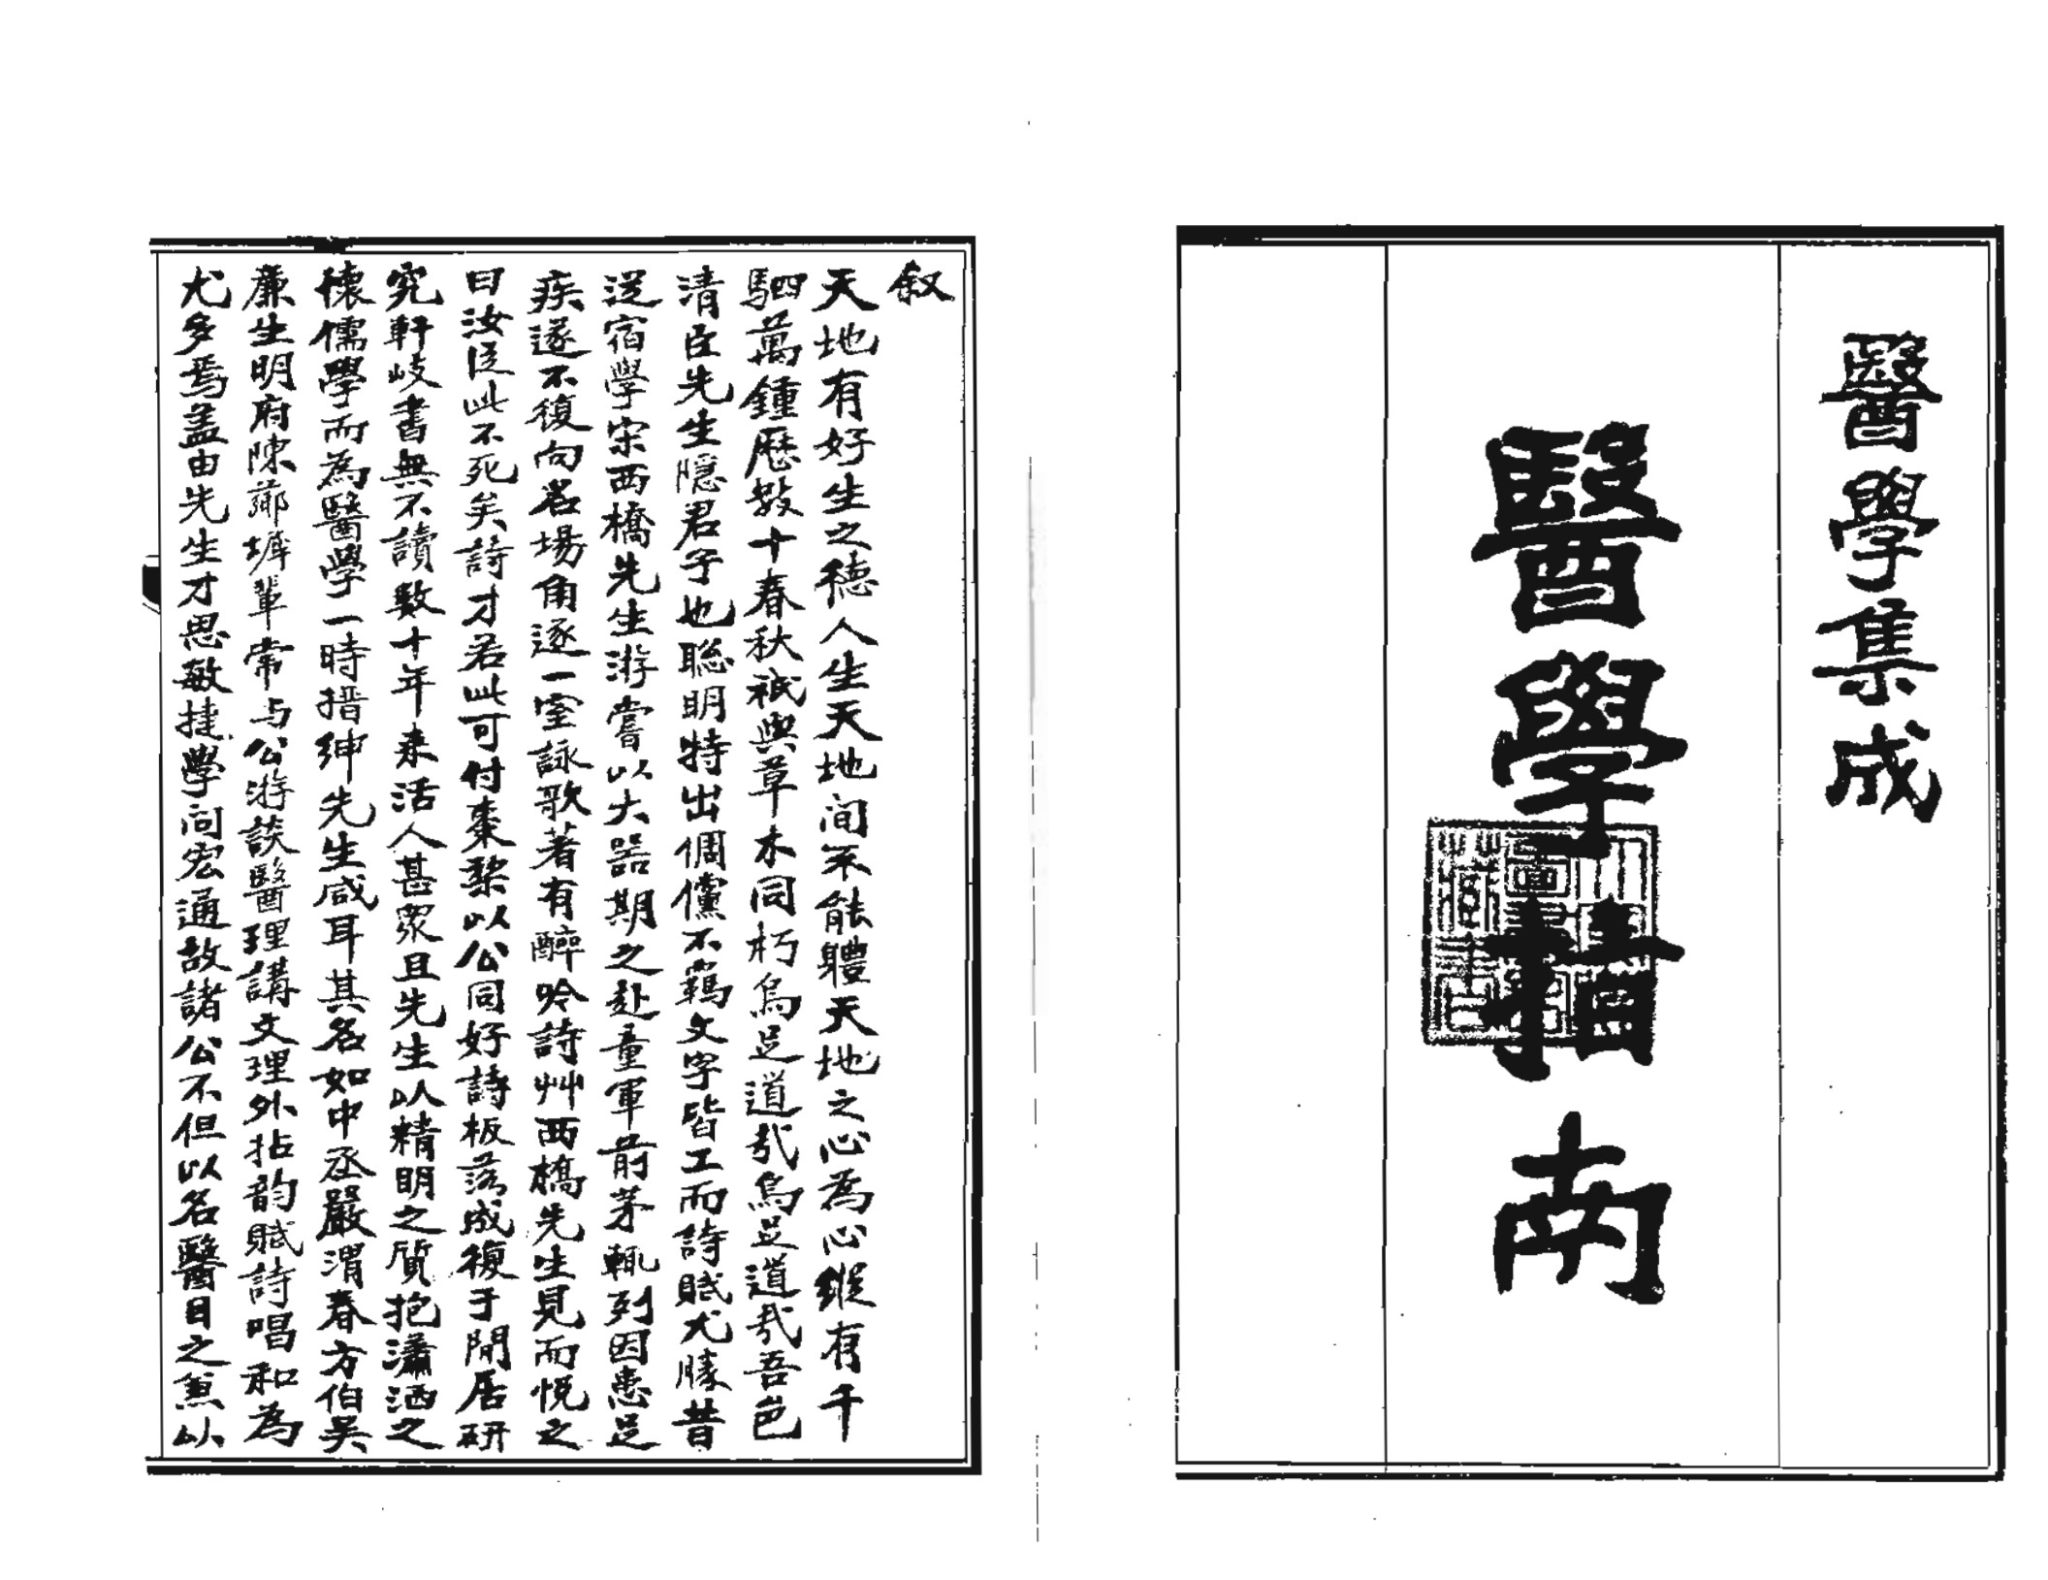 醫學集成
醫學指南
叙
天地有好生之德人生天地间不能體天地之心為心縱有千
駟萬鍾歷數十春秋祇與草木同朽烏足道哉烏足道哉吾邑
清臣先生隱君子也聰明特出倜儻不羈文字皆工而詩賦尤勝昔
從宿學宋西橋先生游嘗以大器期之赴童軍前茅輒列因患足
疾遂不復向名場角逐一室詠歌著有醉吟詩艸西橋先生見而悦之
曰汝從此不死矣詩才若此可付棗棃以公同好詩板落成復于閒居研
究軒岐書無不讀數十年来活人甚衆且先生以精明之質抱瀟洒之
懷儒學而為醫學一時搢紳先生咸耳其名如中丞嚴渭春方伯吴
廉生明府陳墀輩常与公游談醫理講文理外拈韵賦詩唱和為
尤多焉盖由先生才思敏捷學问宏通故諸公不但以名醫目之兼以